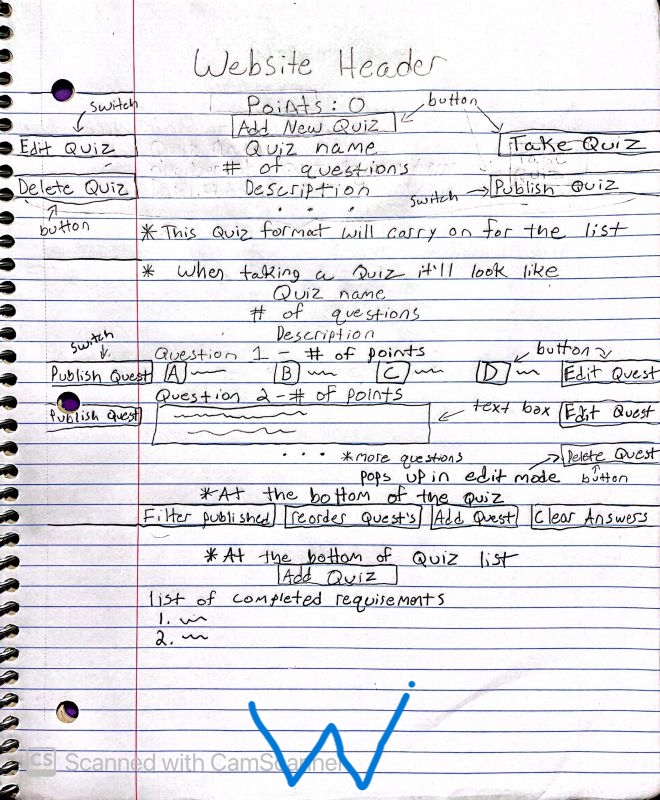 Website Header
switch
Points: 0
button
Add New Quiz
Edit Quiz
Quiz name
Take Quiz
# of questions
Delete Quiz
Description
switch
Publish Quiz
. . .
button
* This Quiz format will carry on for the list
* When taking a Quiz it'll look like
Quiz name
# of questions
Description
switch
Question 1 - # of points
button
Publish Quest
A
B
C
D
Edit Quest
Question 2 - # of points
Publish Quest
text box
Edit Quest
. . . * more questions
Delete Quest
pops up in edit mode
button
* At the bottom of the Quiz
Filter published
reorder Quest's
Add Quest
Clear Answers
* At the bottom of Quiz list
Add Quiz
list of completed requisements
1.
2.
W
CS Scanned with CamScanner